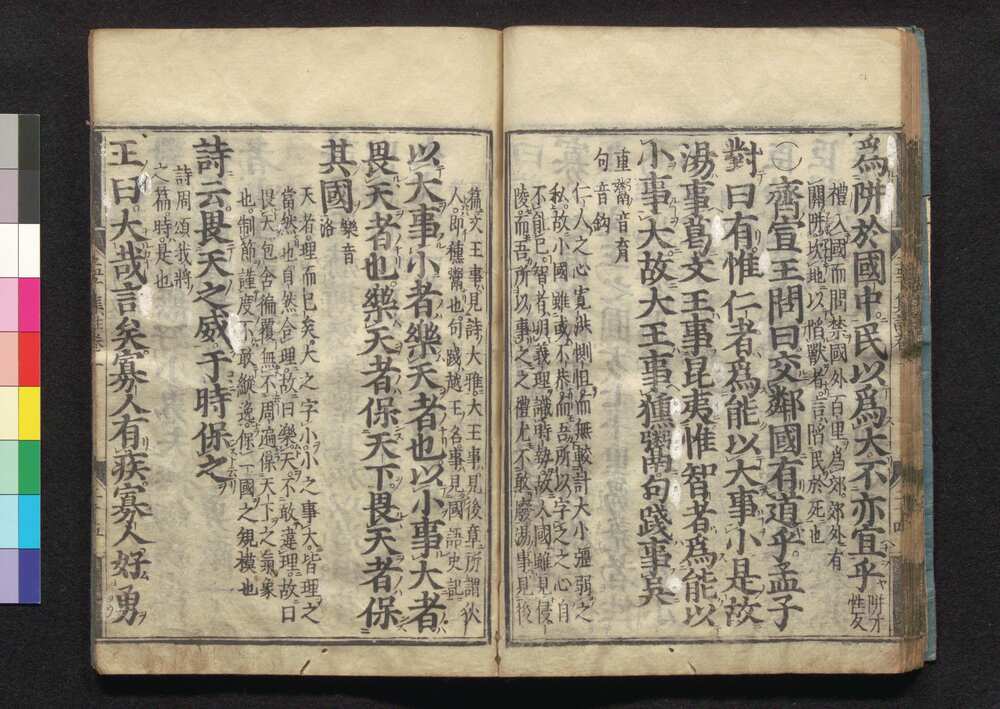 為阱於國中民以為大不亦宜乎 阱才性反
禮入國而問禁國外百里為郊郊外有
關阱坎地以陷獸者言陷民於死也
〇齊宣王問曰交鄰國有道乎孟子
對曰有惟仁者為能以大事小是故
湯事葛文王事昆夷惟智者為能以
小事大故大王事獯鬻句踐事吳
獯音熏鬻音育
句音鉤
仁人之心寬洪惻怛而無較計大小強弱之
私故小國雖或不恭而吾所以字之之心自
不能已智者明義理識時勢故大國雖見侵
陵而吾所以事之之禮尤不敢廢湯事見後
篇文王事見詩大雅大王事見後章所謂狄
人即獯鬻也句踐越王名事見國語史記
以大事小者樂天者也以小事大者
畏天者也樂天者保天下畏天者保
其國 樂音洛
天者理而已矣大之字小小之事大皆理之
當然也自然合理故曰樂天不敢違理故曰
畏天包含徧覆無不周遍保天下之氣象
也制節謹度不敢縱逸保一國之規模也
詩云畏天之威于時保之
詩周頌我將
之篇時是也
王曰大哉言矣寡人有疾寡人好勇